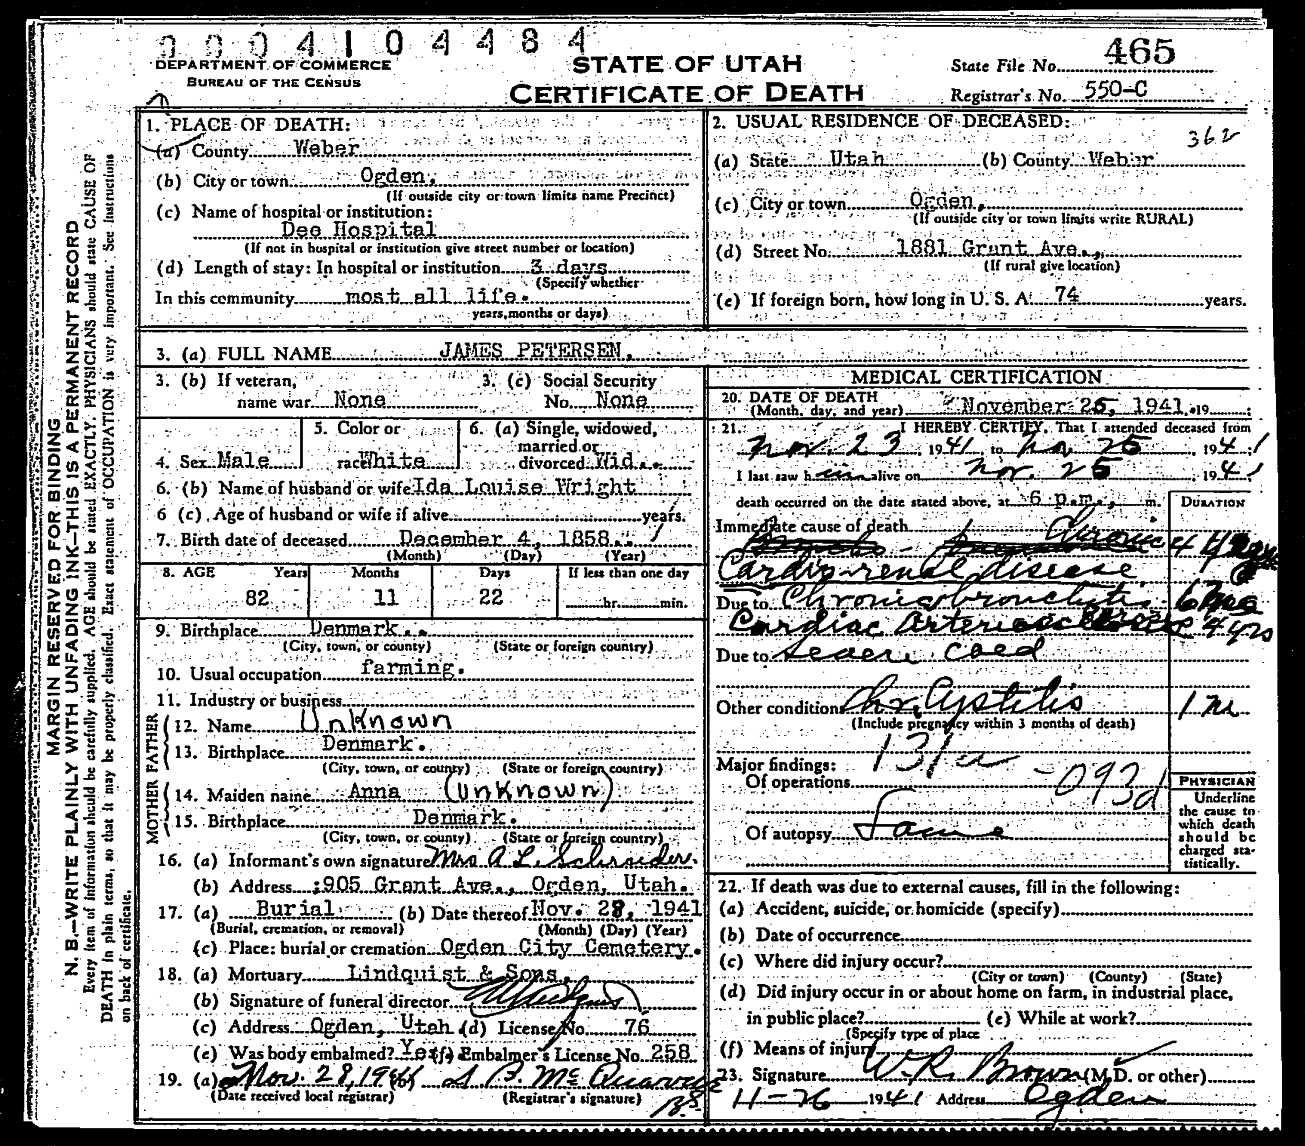 0004104484
DEPARTMENT OF COMMERCE
BUREAU OF THE CENSUS
STATE OF UTAH
CERTIFICATE OF DEATH
State File No. 465
Registrar's No. 550-C
MARGIN RESERVED FOR BINDING
N. B.—WRITE PLAINLY WITH UNFADING INK—THIS IS A PERMANENT RECORD
Every item of information should be carefully supplied. AGE should be stated EXACTLY. PHYSICIANS should state CAUSE OF
DEATH in plain terms, so that it may be properly classified. Exact statement of OCCUPATION is very important. See instructions
on back of certificate.
1. PLACE OF DEATH:
(a) County Weber
(b) City or town Ogden,
(If outside city or town limits name Precinct)
(c) Name of hospital or institution:
Dee Hospital
(If not in hospital or institution give street number or location)
(d) Length of stay: In hospital or institution 3 days
(Specify whether
In this community most all life.
years, months or days)
2. USUAL RESIDENCE OF DECEASED:
362
(a) State Utah (b) County Weber
(c) City or town Ogden,
(If outside city or town limits write RURAL)
(d) Street No. 1881 Grant Ave.,
(If rural give location)
(e) If foreign born, how long in U. S. A. 74 years.
3. (a) FULL NAME JAMES PETERSEN,
3. (b) If veteran, name war None
3. (c) Social Security No. None
4. Sex Male
5. Color or race White
6. (a) Single, widowed, married or divorced Wid..
6. (b) Name of husband or wife Ida Louise Wright
6 (c). Age of husband or wife if alive years.
7. Birth date of deceased December 4, 1858.
(Month) (Day) (Year)
8. AGE Years Months Days If less than one day
82 11 22 hr. min.
9. Birthplace Denmark..
(City, town, or county) (State or foreign country)
10. Usual occupation farming.
11. Industry or business
FATHER
12. Name Unknown
13. Birthplace Denmark.
(City, town, or county) (State or foreign country)
MOTHER
14. Maiden name Anna (Unknown)
15. Birthplace Denmark.
(City, town, or county) (State or foreign country)
16. (a) Informant's own signature Mrs A L Schneider.
(b) Address 905 Grant Ave., Ogden, Utah.
17. (a) Burial (b) Date thereof Nov. 28, 1941
(Burial, cremation, or removal) (Month) (Day) (Year)
(c) Place: burial or cremation Ogden City Cemetery.
18. (a) Mortuary Lindquist & Sons.
(b) Signature of funeral director
(c) Address Ogden, Utah (d) License No. 76
(e) Was body embalmed? Yes (f) Embalmer's License No. 258
19. (a) Nov. 28, 1941
(Date received local registrar) (Registrar's signature)
MEDICAL CERTIFICATION
20. DATE OF DEATH
(Month, day, and year) November 25, 1941. 19
21. I HEREBY CERTIFY, That I attended deceased from
Nov. 23 1941 to Nov 25, 1941
I last saw him alive on Nov. 25, 1941
death occurred on the date stated above, at 6 p.m., m.
DURATION
Immediate cause of death Chronic
Cardio-renal disease
Due to Chronic bronchitis 6
Cardiac 4 yrs
Due to severe cold
Other condition Chr. Cystitis 1 m
(Include pregnancy within 3 months of death)
131a
Major findings:
Of operations
-093d
Of autopsy Same
PHYSICIAN
Underline
the cause to
which death
should be
charged sta-
tistically.
22. If death was due to external causes, fill in the following:
(a) Accident, suicide, or homicide (specify)
(b) Date of occurrence
(c) Where did injury occur?
(City or town) (County) (State)
(d) Did injury occur in or about home on farm, in industrial place,
in public place? (e) While at work?
(Specify type of place
(f) Means of injury
23. Signature W.R. Brown (M.D. or other)
11-26 1941 Address Ogden